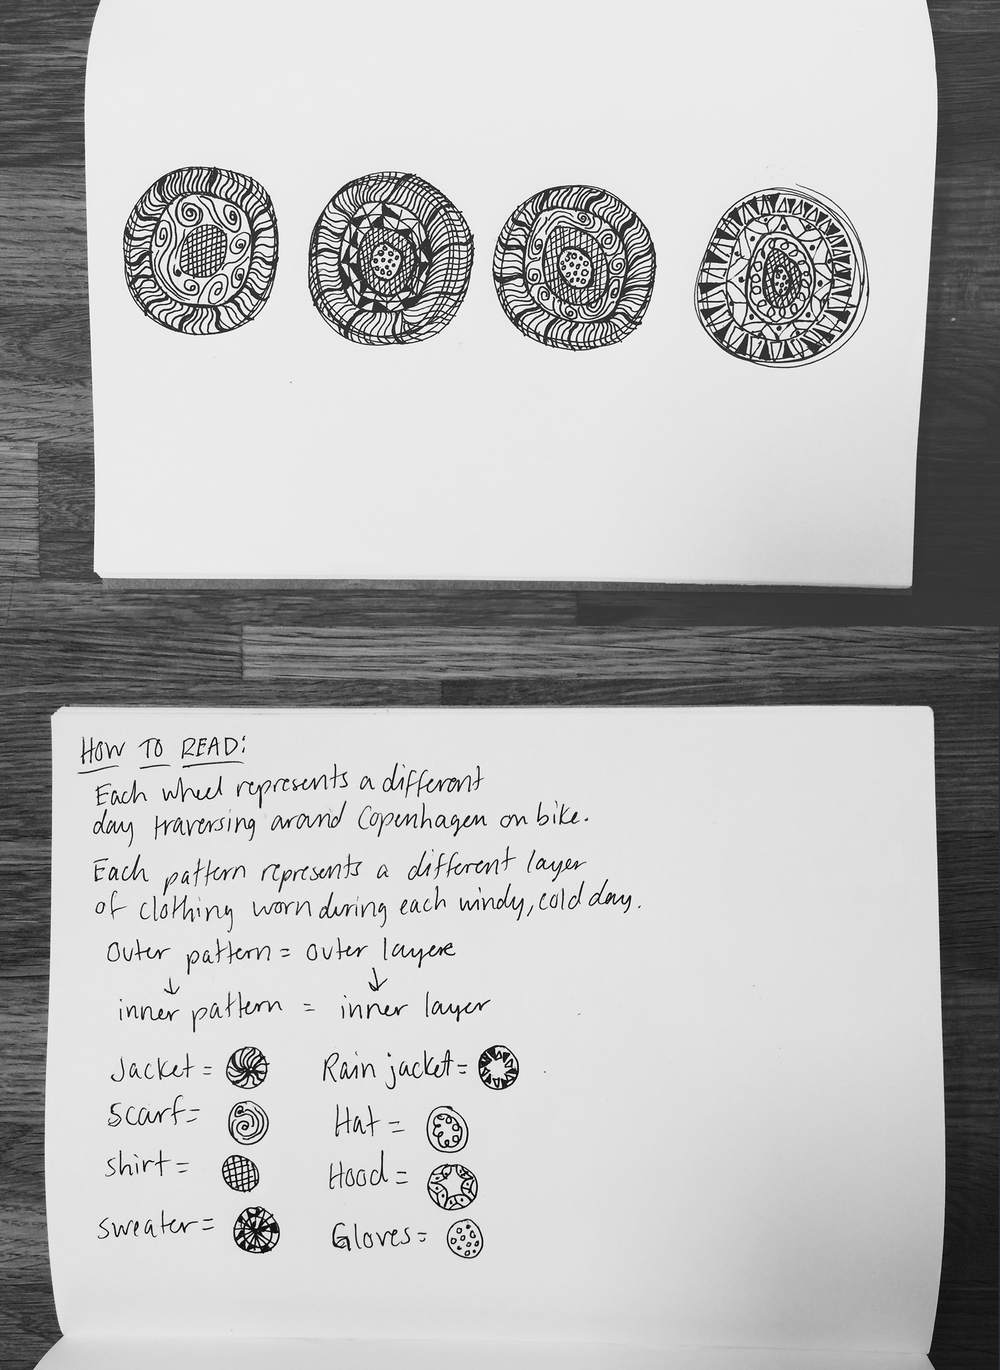 HOW TO READ:
Each wheel represents a different
day traversing around Copenhagen on bike.
Each pattern represents a different layer
of clothing worn during each windy, cold day.
Outer pattern = outer layer
↓ ↓
inner pattern = inner layer
Jacket = Rain jacket =
Scarf = Hat =
shirt = Hood =
sweater = Gloves =